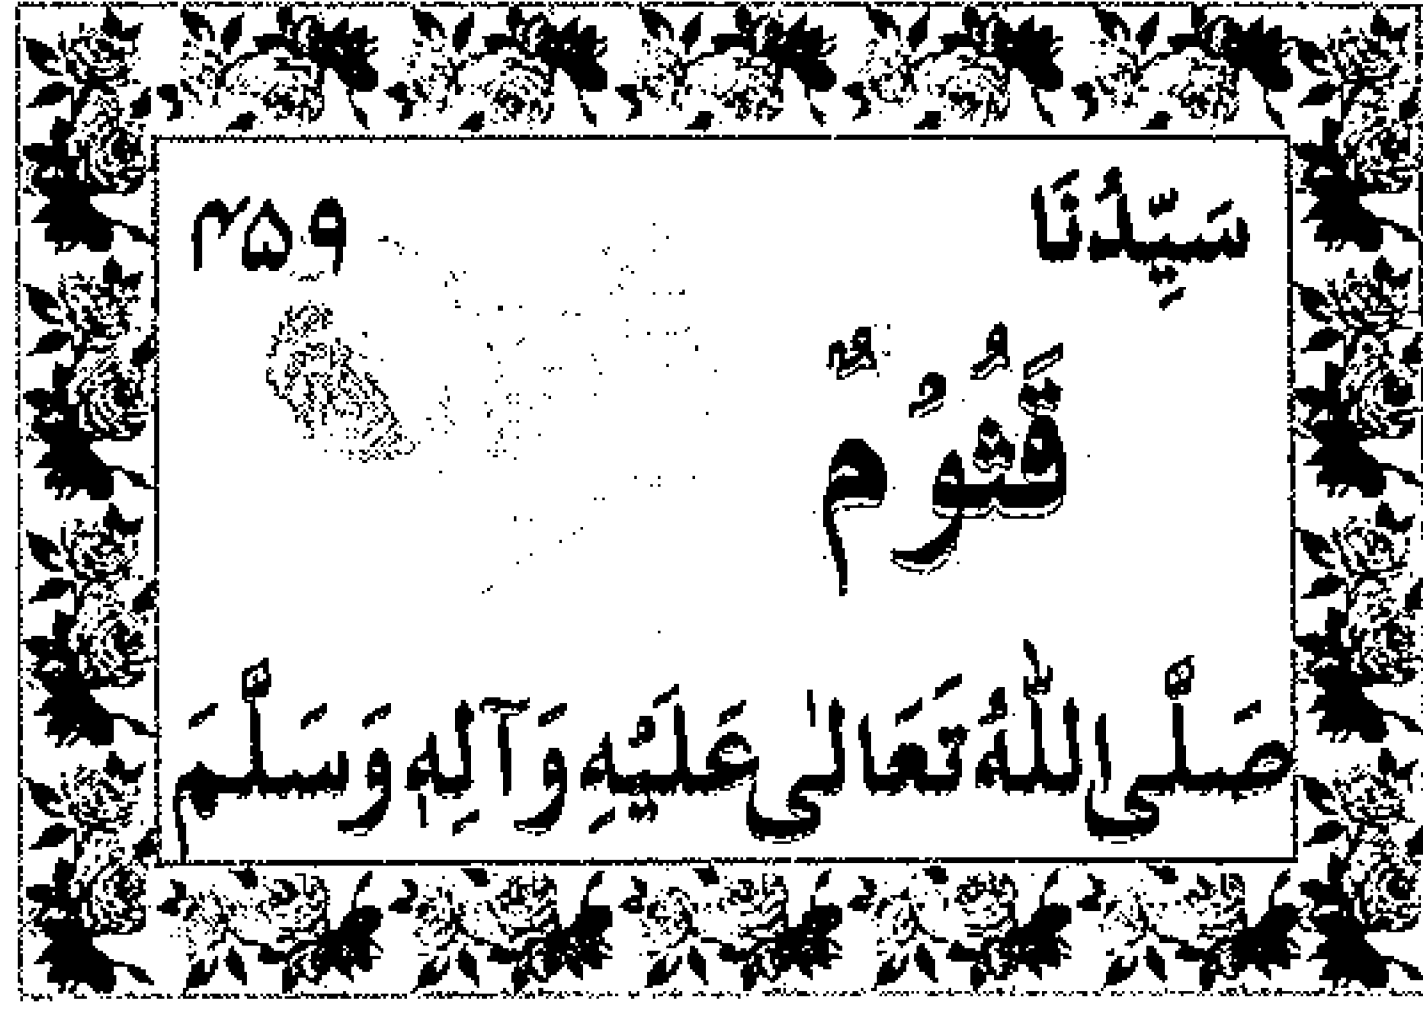 سَيِّدُنَا ۴۵۹
قَثُوُمٌ
صَلَّی اللّٰهُ تَعَالٰی عَلَیْهِ وَآلِهٖ وَسَلَّمَ